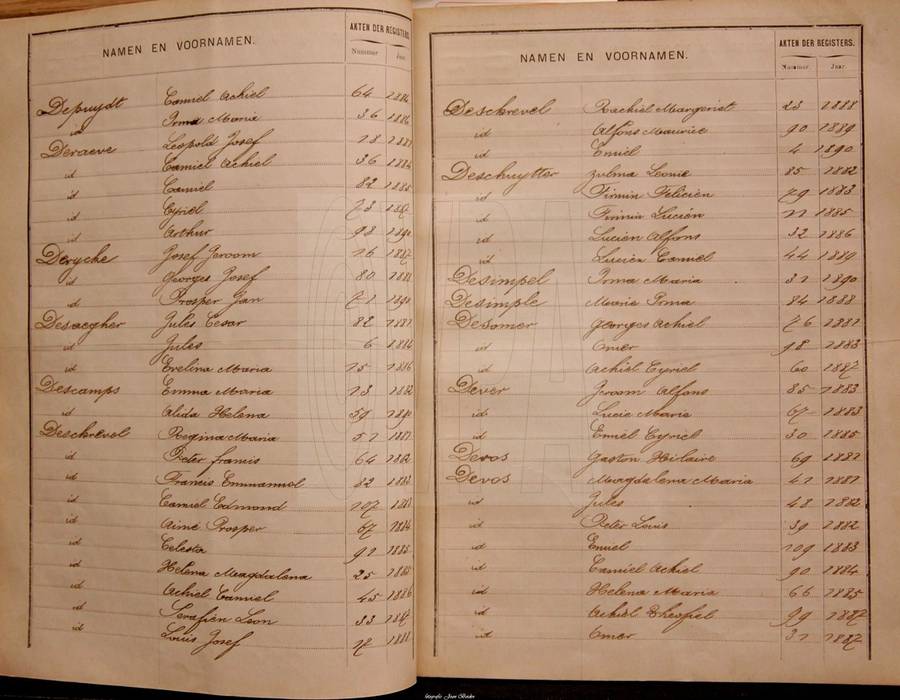 NAMEN EN VOORNAMEN. AKTEN DER REGISTERS.
Nummer Jaar.
Depuydt Camiel Achiel 64 1884
id Irma Maria 36 1886
Deraeve Leopold Josef
id Camiel Achiel 36 1884
id Camiel 82 1885
id Cyriel 73 1887
id Arthur 98 1890
Derycke Josef Jeroom 16 1887
id Georges Josef 80 1888
id Prosper Jan 71 1890
Desaegher Jules Cesar 82 1881
id Jules 6 1884
id Evelina Maria 15 1886
Descamps Emma Maria 13 1882
id Alida Helena 59 1890
Deschrevel Regina Maria 51 1881
id Peter francis 64 1882
id Francis Emmanuel 82 1882
id Camiel Edmond 107 1883
id Aimé Prosper 67 1884
id Celesta 91 1885
id Helena Magdalena 25 1885
id Achiel Camiel 45 1886
id Serafien Leon 33 1887
id Louis Josef 17 1888
NAMEN EN VOORNAMEN. AKTEN DER REGISTERS.
Nummer Jaar.
Deschrevel Rachiel Margeriet 23 1888
id Alfons Maurice 90 1889
id Emiel 4 1890
Deschuytter Zulma Leonie 85 1882
id Firmin Felicien 79 1883
id Firmin Lucien 11 1885
id Lucien Alfons 32 1886
id Lucien Camiel 44 1889
Desimpel Irma Maria 31 1890
Desimple Marie Irma 84 1888
Desomer Georges Achiel 76 1881
id Omer 98 1883
id Achiel Cyriel 60 1887
Dever Jeroom Alfons 85 1883
id Lucie Marie 67 1883
id Emiel Cyriel 30 1885
Devos Gaston Hilaire 69 1881
Devos Magdalena Maria 41 1881
id Jules 48 1882
id Peter Louis 39 1882
id Emiel 109 1883
id Camiel Achiel 90 1884
id Helena Maria 66 1885
id Achiel Theofiel 99 1887
id Omer 31 1887
fotografie: Joan